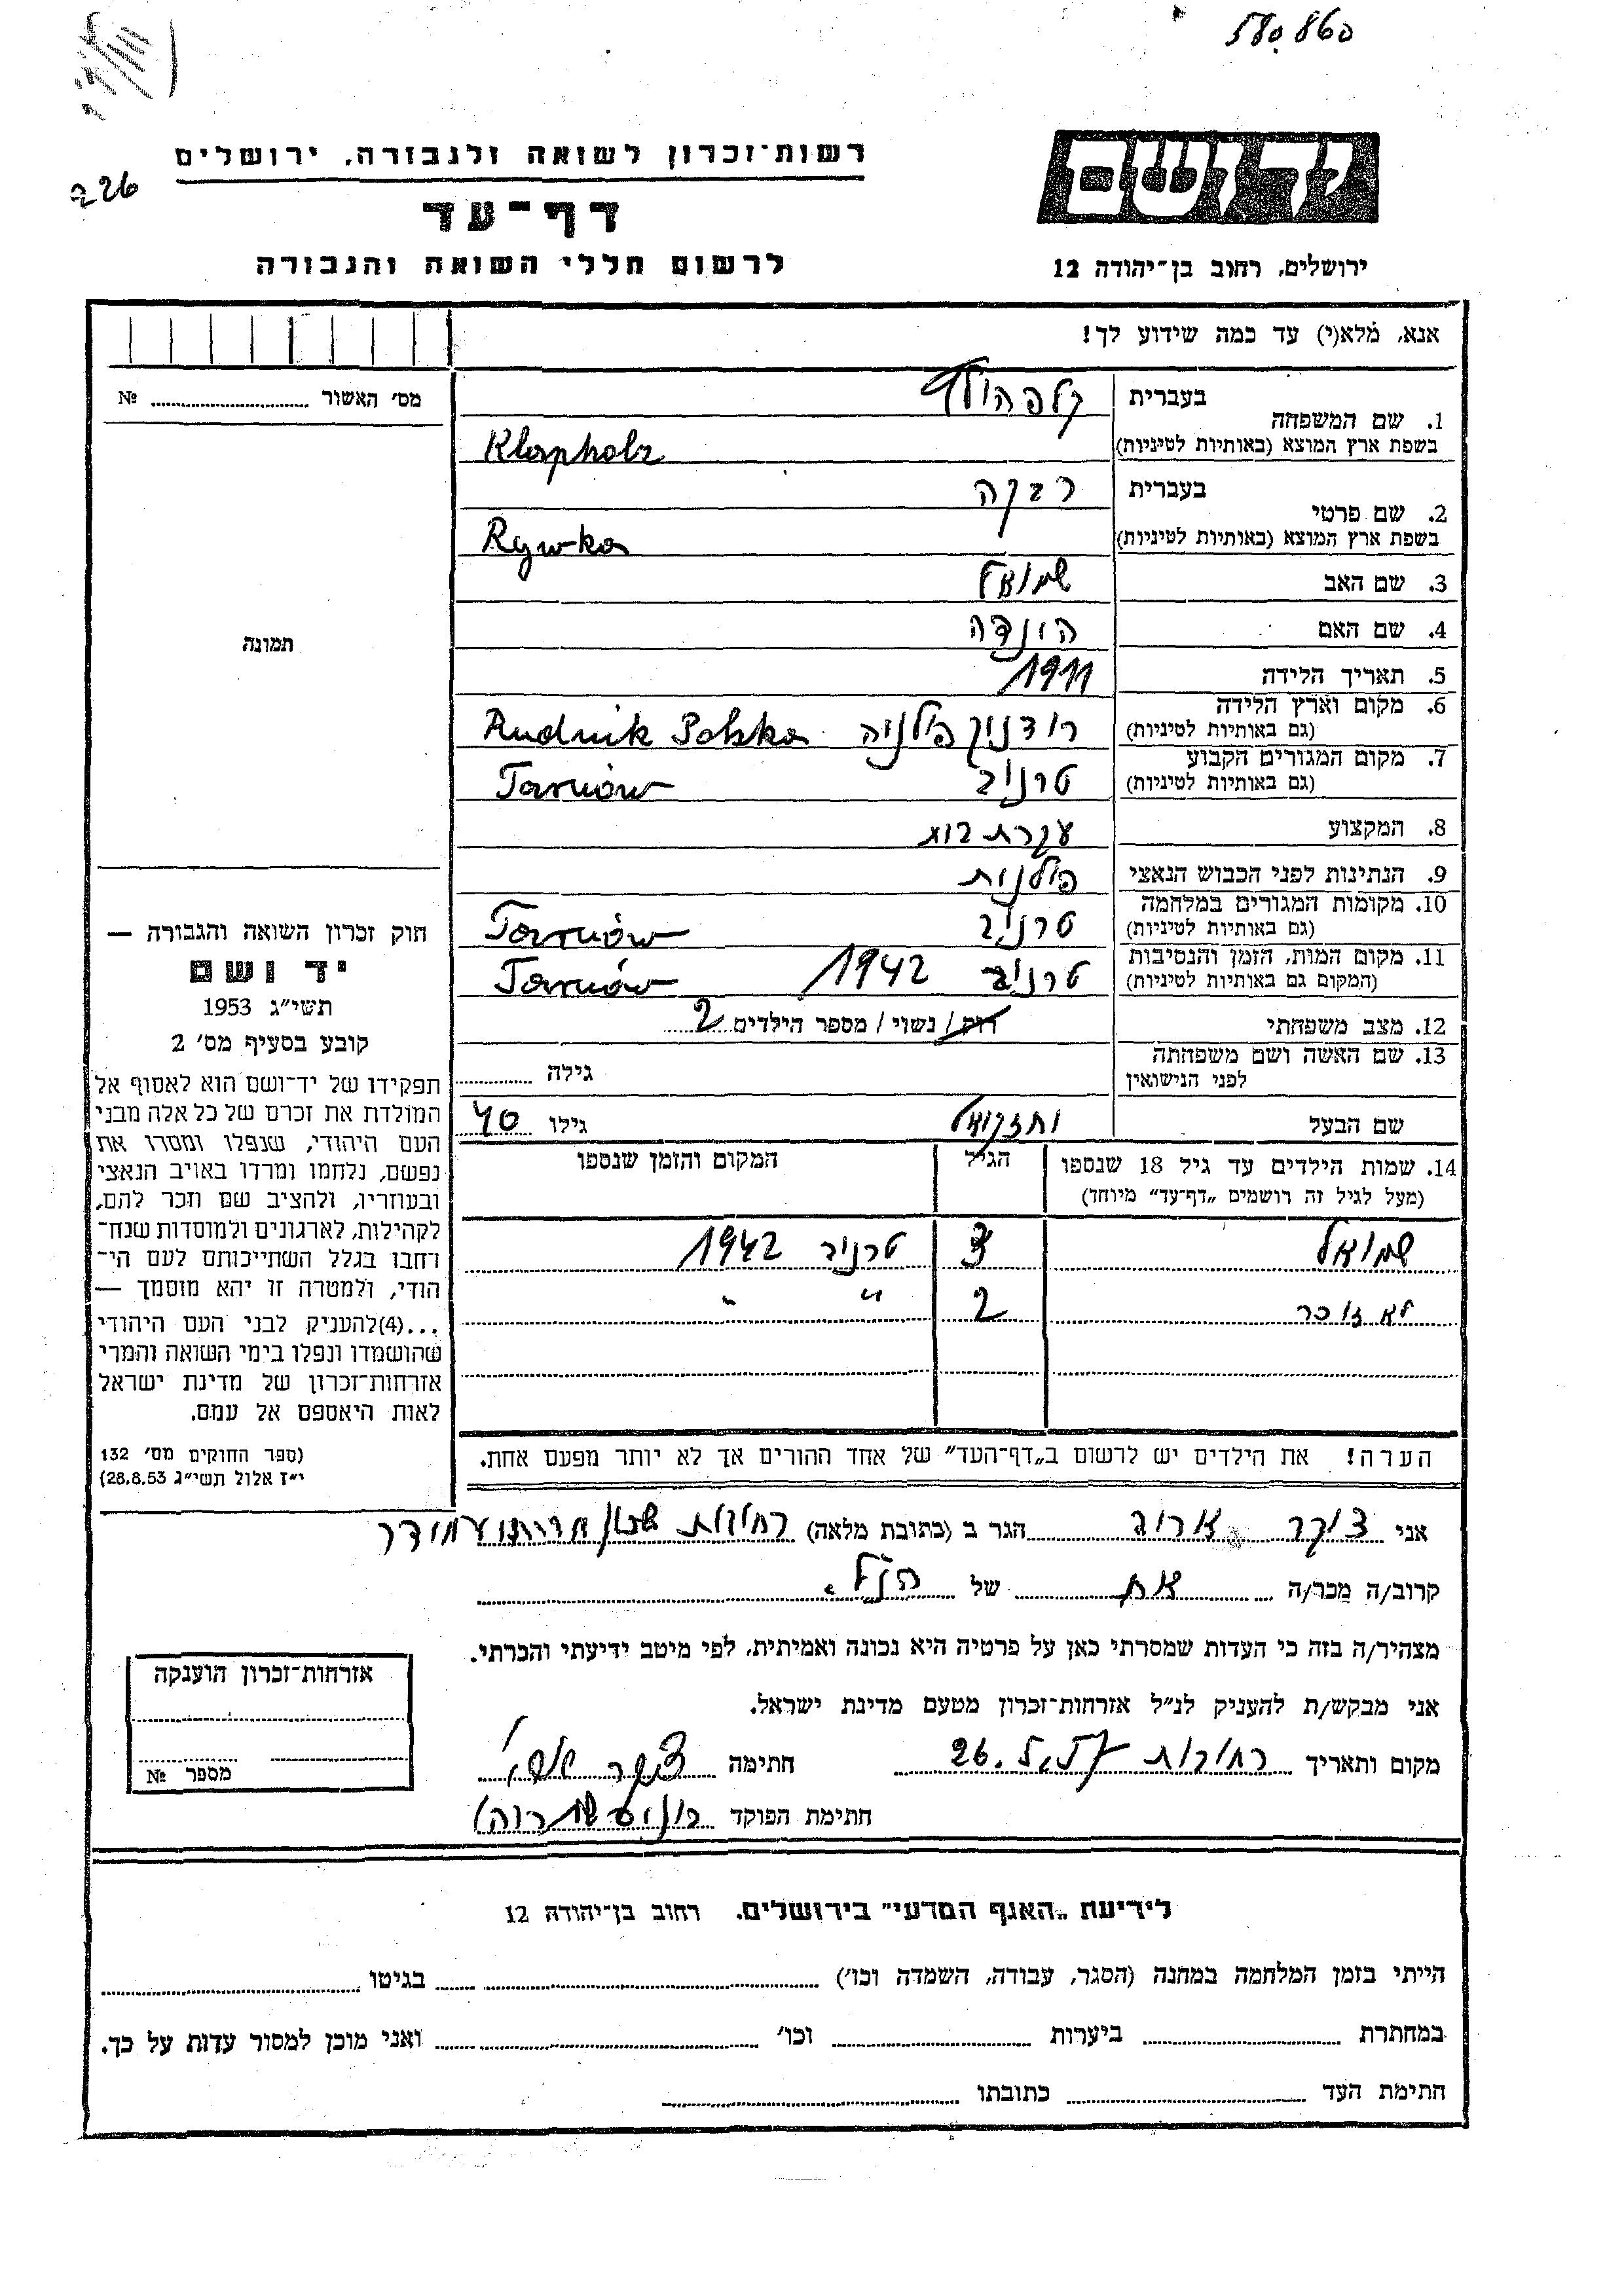 580860
רשות־זכרון לשואה ולגבורה, ירושלים
226
דף־עד
לרשום חללי השואה והגבורה
ירושלים, רחוב בן־יהודה 12
אנא, מלא(י) עד כמה שידוע לך!
מס׳ האשור № 
1. שם המשפחה בעברית קלפהולץ
בשפת ארץ המוצא (באותיות לטיניות) Klapholz
2. שם פרטי בעברית רבקה
בשפת ארץ המוצא (באותיות לטיניות) Rywka
3. שם האב שמואל
4. שם האם הינדה
תמונה
5. תאריך הלידה 1911
6. מקום וארץ הלידה (גם באותיות לטיניות) רודניק פולניה Rudnik Polska
7. מקום המגורים הקבוע (גם באותיות לטיניות) טרניב Tarnów
8. המקצוע עקרת בית
9. הנתינות לפני הכבוש הנאצי פולנית
10. מקומות המגורים במלחמה (גם באותיות לטיניות) טרניב Tarnów
11. מקום המות, הזמן והנסיבות (המקום גם באותיות לטיניות) טרניב 1942 Tarnów
12. מצב משפחתי רווק / נשוי / מספר הילדים 2
13. שם האשה ושם משפחתה לפני הנישואין גילה
שם הבעל יחזקאל גילו 40
14. שמות הילדים עד גיל 18 שנספו הגיל המקום והזמן שנספו
(מעל לגיל זה רושמים „דף־עד״ מיוחד)
שמואל 3 טרניב 1942
לא זוכר 2 ״ ״
הערה! את הילדים יש לרשום ב„דף־העד״ של אחד ההורים אך לא יותר מפעם אחת.
חוק זכרון השואה והגבורה —
יד ושם
תשי״ג 1953
קובע בסעיף מס׳ 2
תפקידו של יד־ושם הוא לאסוף אל
המולדת את זכרם של כל אלה מבני
העם היהודי, שנפלו ומסרו את
נפשם, נלחמו ומרדו באויב הנאצי
ובעוזריו, ולהציב שם וזכר להם,
לקהילות, לארגונים ולמוסדות שנח־
רחבו בגלל השתייכותם לעם הי־
הודי, ולמטרה זו יהא מוסמך —
...(4)להעניק לבני העם היהודי
שהושמדו ונפלו בימי השואה והמרי
אזרחות־זכרון של מדינת ישראל
לאות היאספם אל עמם.
(ספר החוקים מס׳ 132
י״ז אלול תשי״ג 28.8.53)
אני צוקר הגר ב (כתובת מלאה) רחובות שכון
קרוב/ה מכר/ה אח של הנ״ל.
מצהיר/ה בזה כי העדות שמסרתי כאן על פרטיה היא נכונה ואמיתית, לפי מיטב ידיעתי והכרתי.
אני מבקש/ת להעניק לנ״ל אזרחות־זכרון מטעם מדינת ישראל.
מקום ותאריך רחובות חתימה צוקר
חתימת הפוקד
אזרחות־זכרון הוענקה
מספר №
לידיעת „האגף המדעי״ בירושלים. רחוב בן־יהודה 12
הייתי בזמן המלחמה במחנה (הסגר, עבודה, השמדה וכו׳) בגיטו
במחתרת ביערות וכו׳ ואני מוכן למסור עדות על כך.
חתימת העד כתובתו